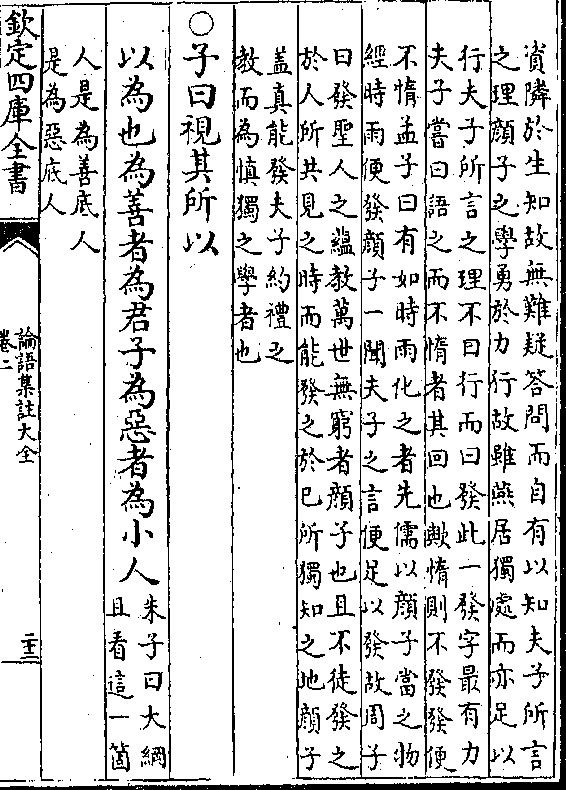 資隣於生知故無難疑答問而自有以知夫子所言
之理顔子之學勇於力行故雖燕居獨處而亦足以
行夫子所言之理不曰行而曰發此一發字最有力
夫子嘗曰語之而不惰者其回也歟惰則不發發便
不惰孟子曰有如時雨化之者先儒以顔子當之物
經時雨便發顔子一聞夫子之言便足以發故周子
曰發聖人之蘊教萬世無窮者顔子也且不徒發之
於人所共見之時而能發之於已所獨知之地顔子
盖真能發夫子約禮之
教而為慎獨之學者也
○子曰視其所以
以為也為善者為君子為惡者為小人
朱子曰大綱
且看這一箇
人是為善底人
是為惡底人
欽定四庫全書
論語集註大全
卷二
二十三